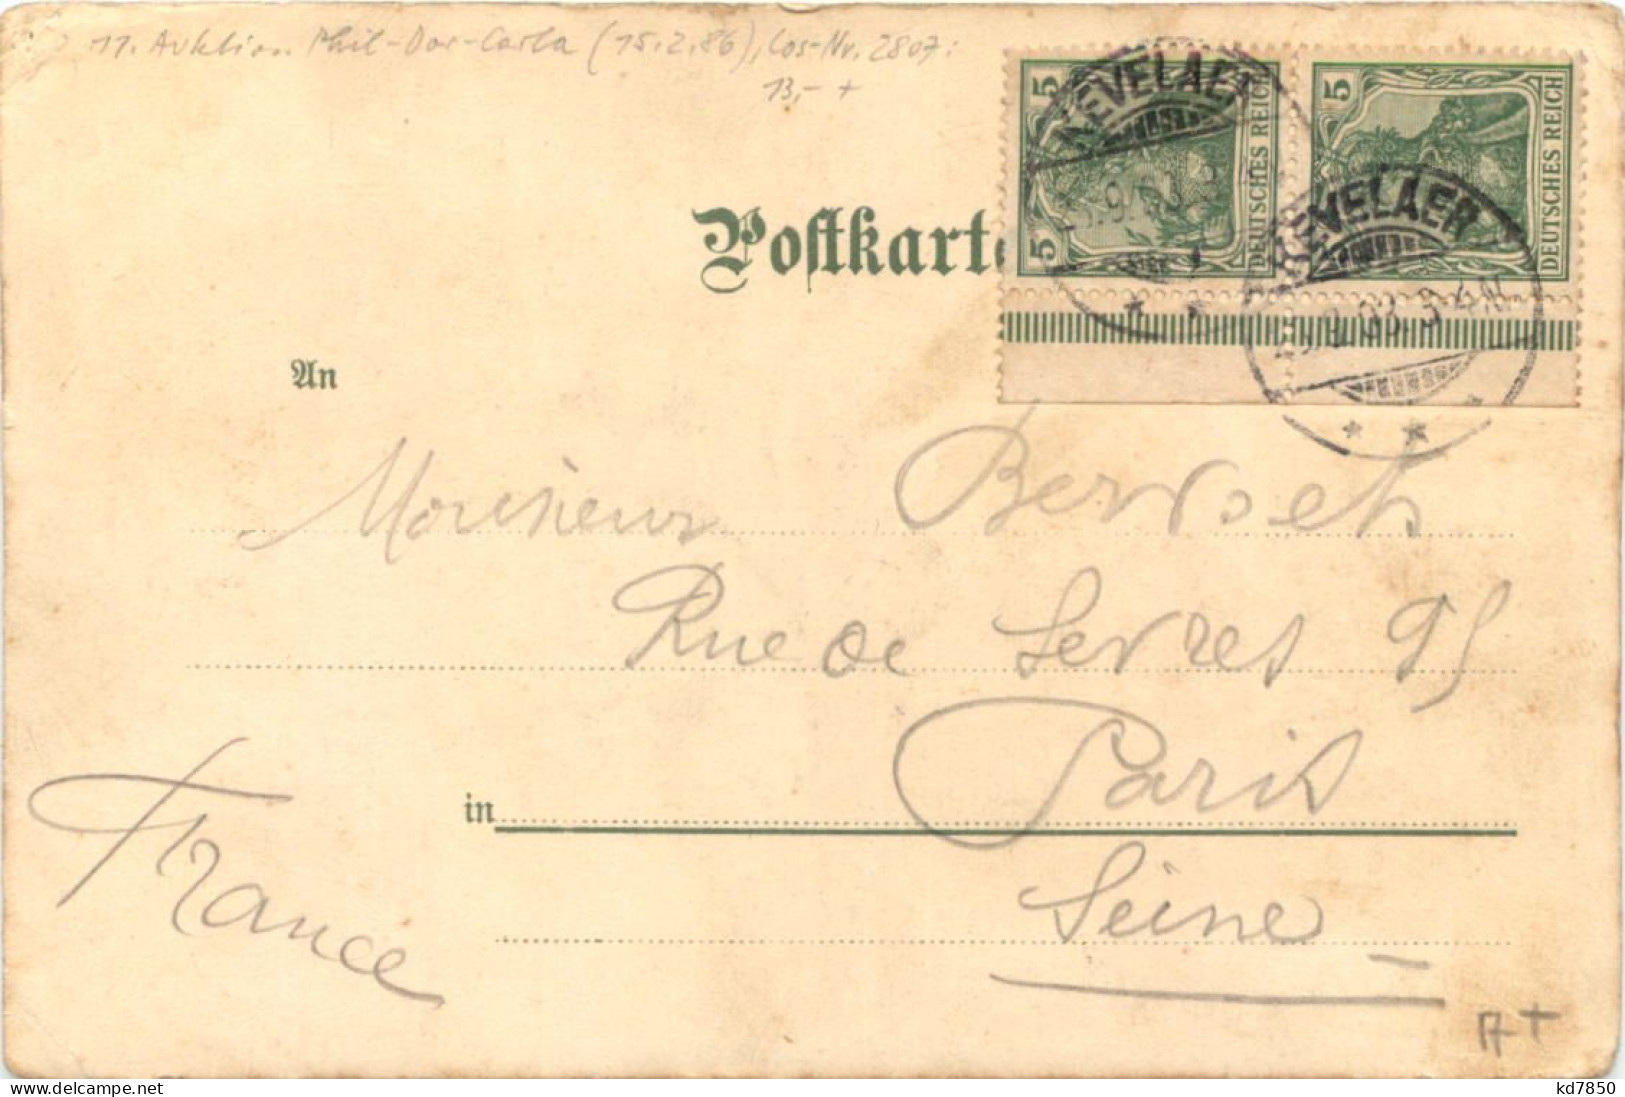 11. Auktion Phil-Dor-Carla (15.2.86), Los-Nr. 2807:
13,- +
5 5 DEUTSCHES REICH
5 DEUTSCHES REICH
KEVELAER
KEVELAER
Postkarte
An
Monsieur
Rue de Sevres 95
in Paris
Seine
France
A+
kd7850